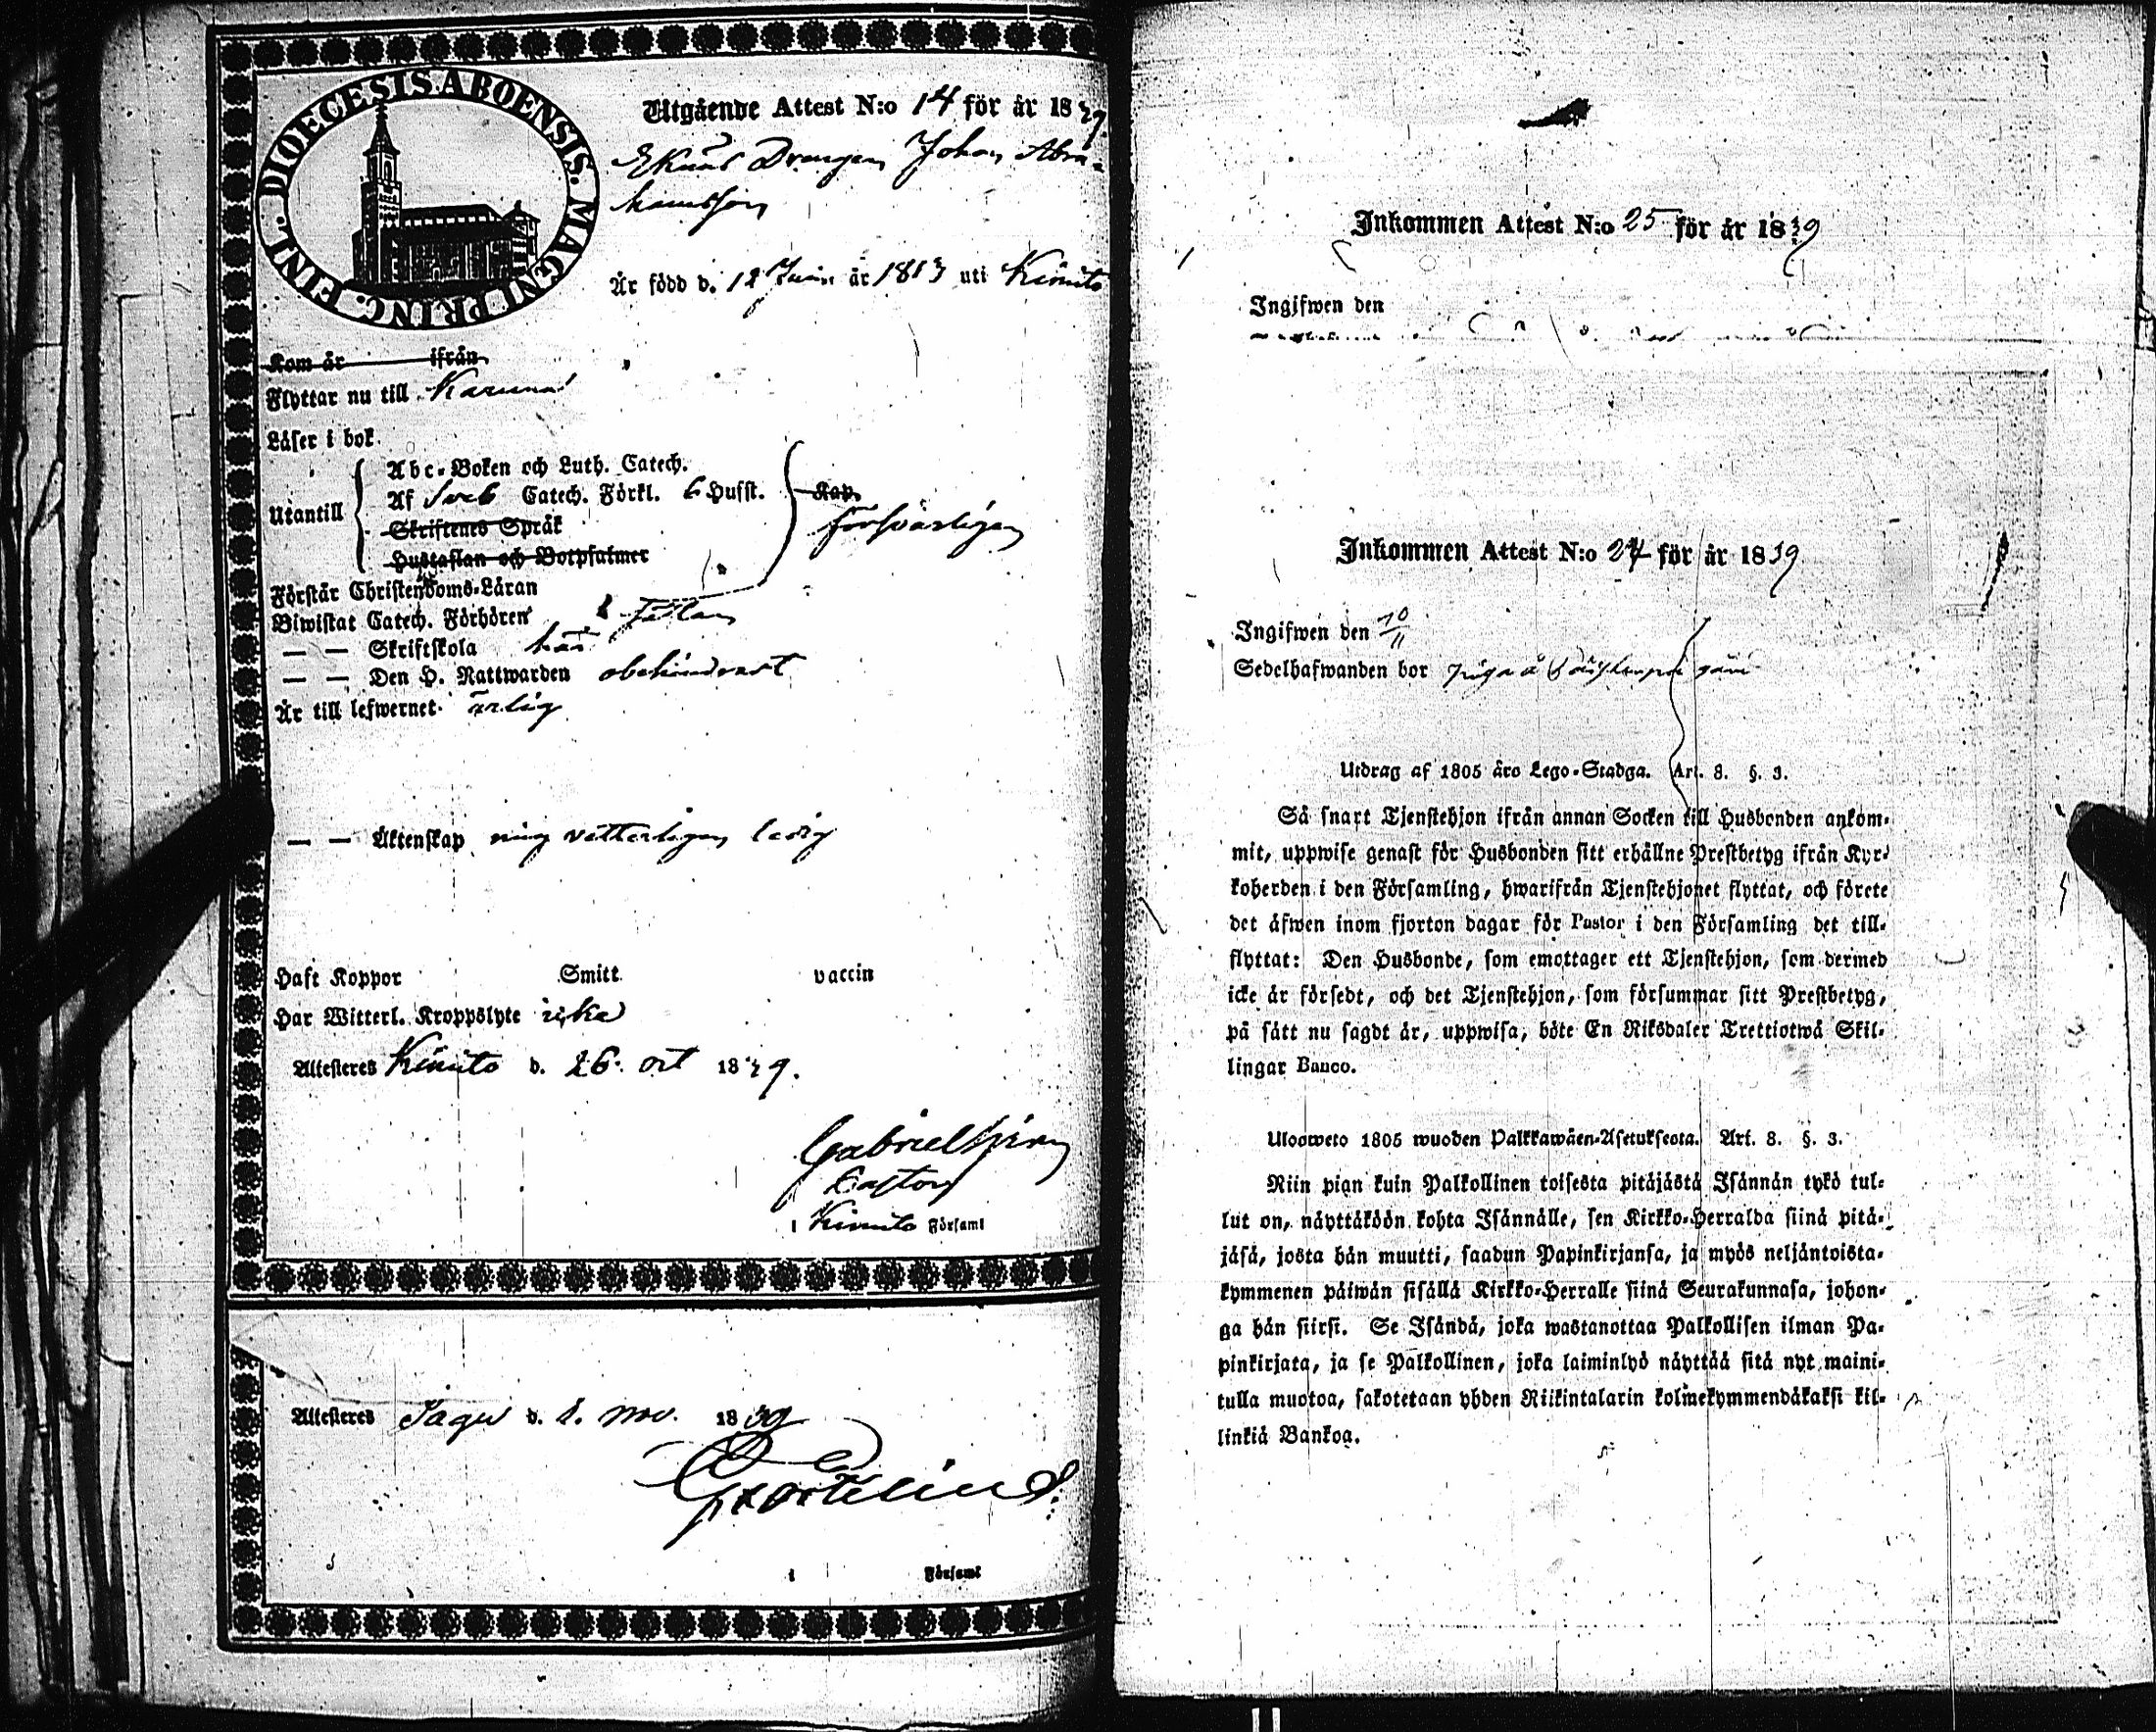 FINL. DIOECESIS ABOENSIS. MAGNI PRINC.
Utgående Attest N:o 14 för år 1839.
Drengen Johan Abra-
hamsson
Är född d. 12 Juni år 1813 uti Kimito
Kom år ifrån
Flyttar nu till Karuna
Läser i bok
Utantill
Abc-Boken och Luth. Catech.
Af Sveb Catech. Förkl. 6 Hufst.
Skriftenes Språk
Hustaflan och Botpsalmer
Kap.
försvarligen
Förstår Christendoms-Läran
Biwistat Catech. Förhören
— — Skriftskola
— — Den H. Nattwarden obehindradt
Är till lefwernet ärlig
— — Äktenskap mig vetterligen ledig
Haft Koppor Smitt vaccin
Har Witterl. Kroppslyte icke
Attesteres Kimito d. 26. oct 1839.
Gabriel
Pastor
i Kimito Församl
Attesteres Sagu d. 1. nov. 1839
i Församl
Inkommen Attest N:o 25 för år 1839
Ingifwen den
Inkommen Attest N:o 24 för år 1839
Ingifwen den 10/11
Sedelhafwanden bor
Utdrag af 1805 års Lego-Stadga. Art. 8. §. 3.
Så snart Tjenstehjon ifrån annan Socken till Husbonden ankom-
mit, uppwise genast för Husbonden sitt erhållne Prestbetyg ifrån Kyr-
koherden i den Församling, hwarifrån Tjenstehjonet flyttat, och förete
det äfwen inom fjorton dagar för Pastor i den Församling det till-
flyttat: Den Husbonde, som emottager ett Tjenstehjon, som dermed
icke är försedt, och det Tjenstehjon, som försummar sitt Prestbetyg,
på sätt nu sagdt är, uppwisa, böte En Riksdaler Trettiotwå Skil-
lingar Banco.
Ulosweto 1805 wuoden Palkkawäen-Asetuksesta. Art. 8. §. 3.
Niin pian kuin Palkollinen toisesta pitäjästä Isännän tykö tul-
lut on, näyttäköön kohta Isännälle, sen Kirkko-Herralda siinä pitä-
jäsä, josta hän muutti, saadun Papinkirjansa, ja myös neljäntoista-
kymmenen päiwän sisällä Kirkko-Herralle siinä Seurakunnasa, johon-
ga hän siirsi. Se Isändä, joka wastanottaa Palkollisen ilman Pa-
pinkirjata, ja se Palkollinen, joka laiminlyö näyttää sitä nyt maini-
tulla muotoa, sakotetaan yhden Riikintalarin kolmekymmendäkaksi kil-
linkiä Bankoa.